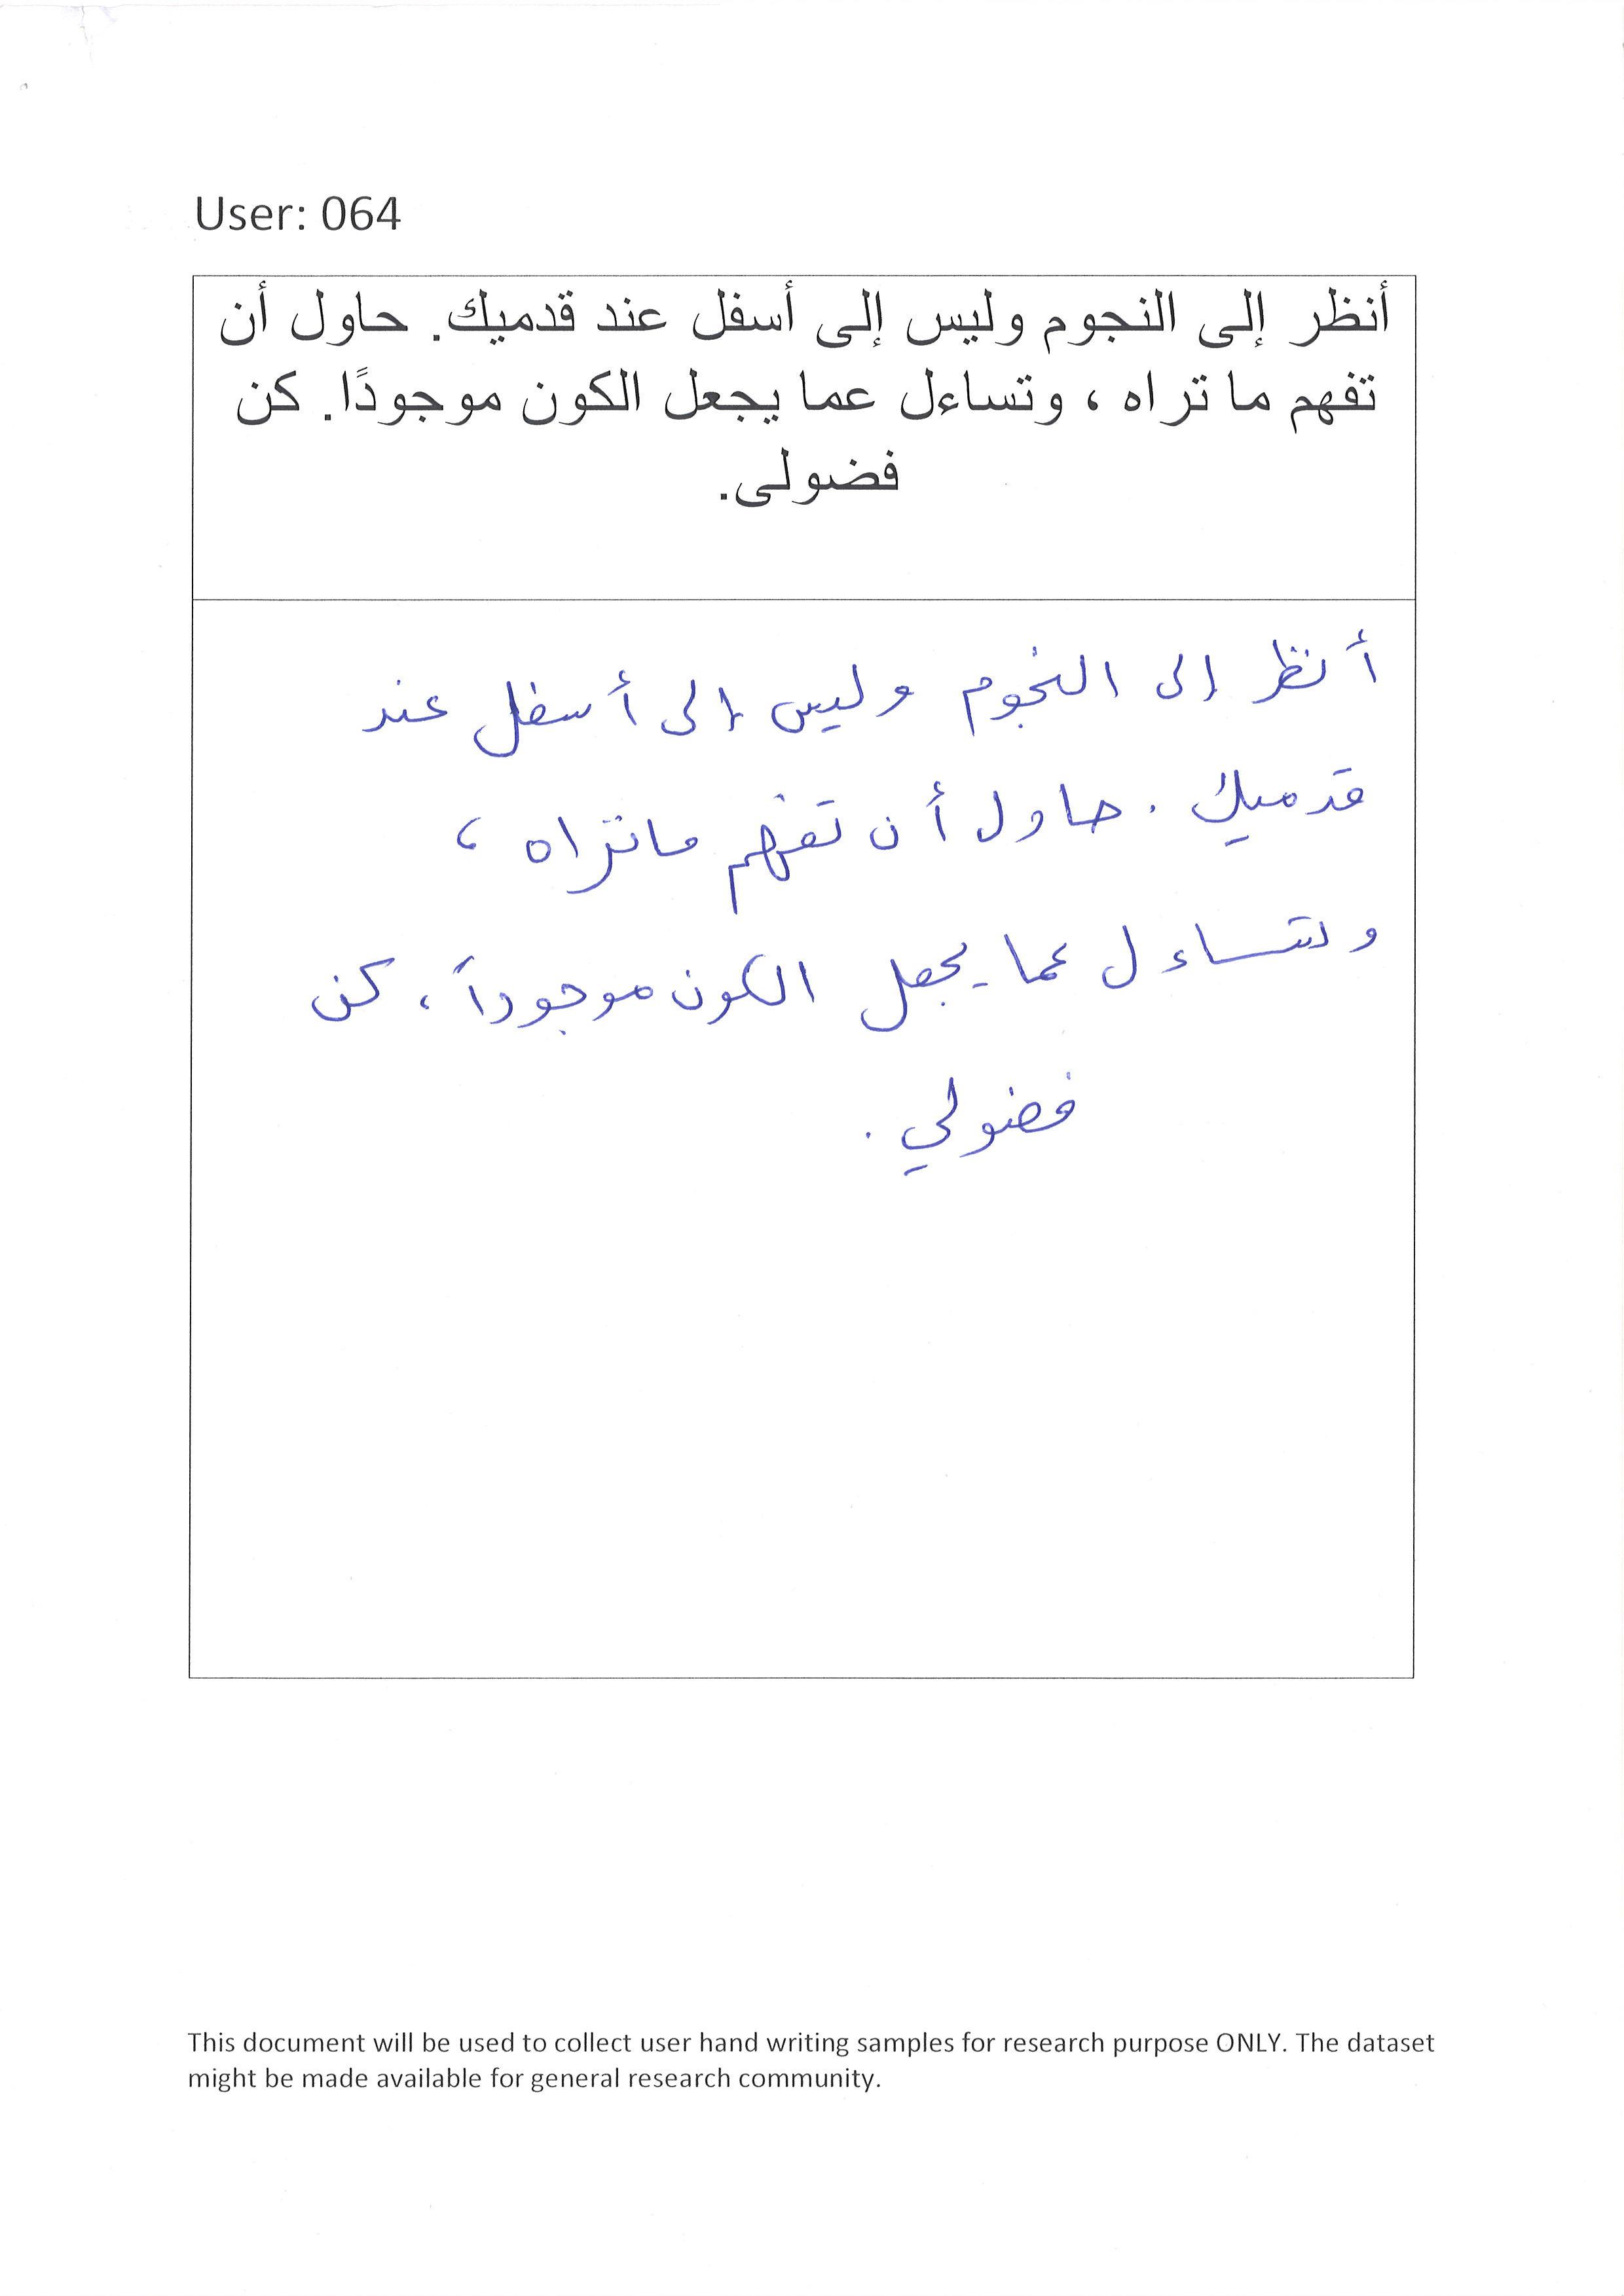 User: 064
أنظر إلى النجوم وليس إلى أسفل عند قدميك. حاول أن
تفهم ما تراه ، وتساءل عما يجعل الكون موجودًا. كن
فضولى.
أنظر إلى النجوم وليس إلى أسفل عند
قدميك . حاول أن تفهم ما تراه ،
وتساءل عما يجعل الكون موجوداً ، كن
فضولي .
This document will be used to collect user hand writing samples for research purpose ONLY. The dataset
might be made available for general research community.